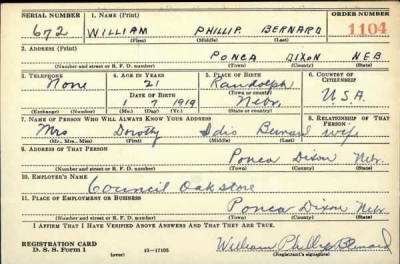 SERIAL NUMBER 1. NAME (Print) ORDER NUMBER
672 WILLIAM PHILLIP BERNARD 1104
(First) (Middle) (Last)
2. ADDRESS (Print)
PONCA DIXON NEB
(Number and street or R. F. D. number) (Town) (County) (State)
3. TELEPHONE 4. AGE IN YEARS 5. PLACE OF BIRTH 6. COUNTRY OF CITIZENSHIP
None 21 Randolph
DATE OF BIRTH (Town or county)
1 7 1919 Nebr. U.S.A.
(Exchange) (Number) (Mo.) (Day) (Yr.) (State or country)
7. NAME OF PERSON WHO WILL ALWAYS KNOW YOUR ADDRESS 8. RELATIONSHIP OF THAT PERSON
Mrs Dorothy Bernard wife
(Mr., Mrs., Miss) (First) (Middle) (Last)
9. ADDRESS OF THAT PERSON
Ponca Dixon Nebr.
(Number and street or R. F. D. number) (Town) (County) (State)
10. EMPLOYER'S NAME
Council Oak store
11. PLACE OF EMPLOYMENT OR BUSINESS
Ponca Dixon Nebr
(Number and street or R. F. D. number) (Town) (County) (State)
I AFFIRM THAT I HAVE VERIFIED ABOVE ANSWERS AND THAT THEY ARE TRUE.
REGISTRATION CARD
D. S. S. Form 1 (over) 16—17105 William Phillip Bernard
(Registrant's signature)